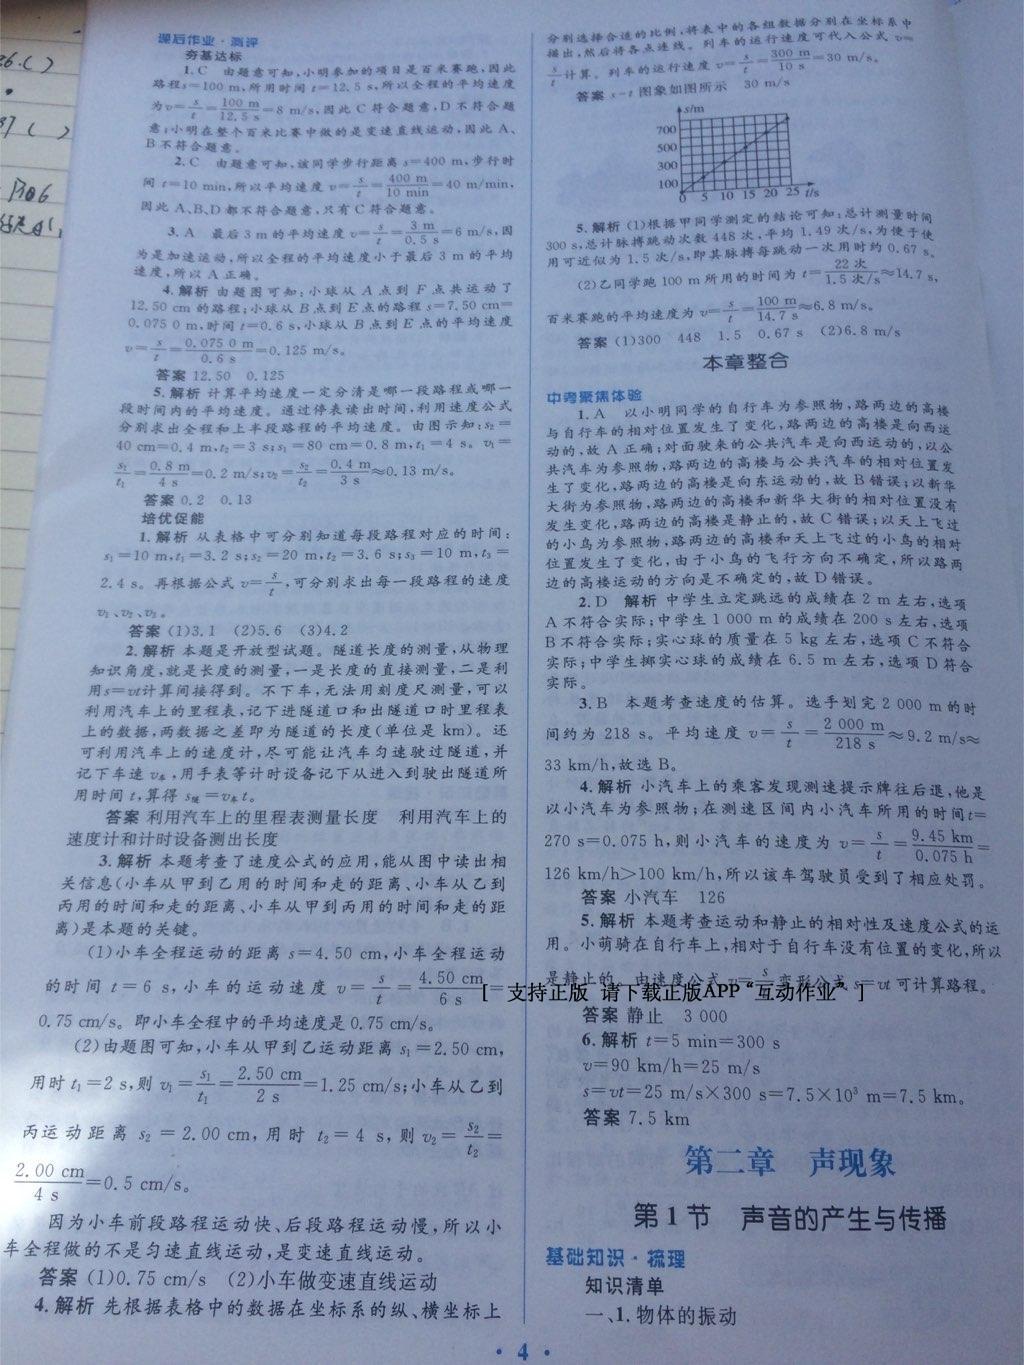 课后作业·测评
夯基达标
1. C 由题意可知,小明参加的项目是百米赛跑,因此
路程s=100 m,所用时间 t=12.5 s,所以全程的平均速度
为v=s/t=100 m/12.5 s=8 m/s,因此 C 符合题意,D 不符合题
意;小明在整个百米比赛中做的是变速直线运动,因此 A、
B 不符合题意。
2. C 由题意可知,该同学步行距离 s=400 m,步行时
间 t=10 min,所以平均速度 v=s/t=400 m/10 min=40 m/min,
因此 A、B、D 都不符合题意,只有 C 符合题意。
3. A 最后 3 m 的平均速度 v=s/t=3 m/0.5 s=6 m/s,因
为是加速运动,所以全程的平均速度小于最后 3 m 的平均
速度,所以 A 正确。
4. 解析 由题图可知:小球从 A 点到 F 点共运动了
12.50 cm 的路程;小球从 B 点到 E 点的路程 s=7.50 cm=
0.075 0 m,时间 t=0.6 s,小球从 B 点到 E 点的平均速度
v=s/t=0.075 0 m/0.6 s=0.125 m/s。
答案 12.50 0.125
5. 解析 计算平均速度一定分清是哪一段路程或哪一
段时间内的平均速度。通过停表读出时间,利用速度公式
分别求出全程和上半段路程的平均速度。由图示知:s2=
40 cm=0.4 m,t2=3 s;s1=80 cm=0.8 m,t1=4 s。v1=
s1/t1=0.8 m/4 s=0.2 m/s;v2=s2/t2=0.4 m/3 s≈0.13 m/s。
答案 0.2 0.13
培优促能
1. 解析 从表格中可分别知道每段路程对应的时间:
s1=10 m,t1=3.2 s;s2=20 m,t2=3.6 s;s3=10 m,t3=
2.4 s。再根据公式 v=s/t,可分别求出每一段路程的速度
v1、v2、v3。
答案 (1)3.1 (2)5.6 (3)4.2
2. 解析 本题是开放型试题。隧道长度的测量,从物理
知识角度,就是长度的测量,一是长度的直接测量,二是利
用s=vt计算间接得到。不下车,无法用刻度尺测量,可以
利用汽车上的里程表,记下进隧道口和出隧道口时里程表
上的数据,两数据之差即为隧道的长度(单位是 km)。还
可利用汽车上的速度计,尽可能让汽车匀速驶过隧道,并
记下车速 v车,用手表等计时设备记下从进入到驶出隧道所
用时间 t,算得 s隧=v车t。
答案 利用汽车上的里程表测量长度 利用汽车上的
速度计和计时设备测出长度
3. 解析 本题考查了速度公式的应用,能从图中读出相
关信息(小车从甲到乙用的时间和走的距离、小车从乙到
丙用的时间和走的距离、小车从甲到丙用的时间和走的距
离)是本题的关键。
(1)小车全程运动的距离 s=4.50 cm,小车全程运动
的时间 t=6 s,小车的运动速度 v=s/t=4.50 cm/6 s=
0.75 cm/s。即小车全程中的平均速度是 0.75 cm/s。
(2)由题图可知,小车从甲到乙运动距离 s1=2.50 cm,
用时 t1=2 s,则 v1=s1/t1=2.50 cm/2 s=1.25 cm/s;小车从乙到
丙运动距离 s2=2.00 cm,用时 t2=4 s,则 v2=s2/t2=
2.00 cm/4 s=0.5 cm/s。
因为小车前段路程运动快、后段路程运动慢,所以小
车全程做的不是匀速直线运动,是变速直线运动。
答案 (1)0.75 cm/s (2)小车做变速直线运动
4. 解析 先根据表格中的数据在坐标系的纵、横坐标上
分别选择合适的比例,将表中的各组数据分别在坐标系中
描出,然后将各点连线。列车的运行速度可代入公式 v=
s/t计算。列车的运行速度 v=s/t=300 m/10 s=30 m/s。
答案 s-t 图象如图所示 30 m/s
s/m
700
500
300
100
0 5 10 15 20 25 t/s
5. 解析 (1)根据甲同学测定的结论可知:总计测量时间
300 s,总计脉搏跳动次数 448 次,平均 1.49 次/s,为便于使
用可近似为 1.5 次/s,即其脉搏每跳动一次用时约 0.67 s。
(2)乙同学跑 100 m 所用的时间为 t=22 次/1.5 次/s≈14.7 s,
百米赛跑的平均速度为 v=s/t=100 m/14.7 s≈6.8 m/s。
答案 (1)300 448 1.5 0.67 s (2)6.8 m/s
本章整合
中考聚焦体验
1. A 以小明同学的自行车为参照物,路两边的高楼
与自行车的相对位置发生了变化,路两边的高楼是向西运
动的,故 A 正确;对面驶来的公共汽车是向西运动的,以公
共汽车为参照物,路两边的高楼与公共汽车的相对位置发
生了变化,路两边的高楼是向东运动的,故 B 错误;以新华
大街为参照物,路两边的高楼和新华大街的相对位置没有
发生变化,路两边的高楼是静止的,故 C 错误;以天上飞过
的小鸟为参照物,路两边的高楼和天上飞过的小鸟的相对
位置发生了变化,由于小鸟的飞行方向不确定,所以路两
边的高楼运动的方向是不确定的,故 D 错误。
2. D 解析 中学生立定跳远的成绩在 2 m 左右,选项
A 不符合实际;中学生 1 000 m 的成绩在 200 s 左右,选项
B 不符合实际;实心球的质量在 5 kg 左右,选项 C 不符合
实际;中学生掷实心球的成绩在 6.5 m 左右,选项 D 符合
实际。
3. B 本题考查速度的估算。选手划完 2 000 m 的时
间约为 218 s。平均速度 v=s/t=2 000 m/218 s≈9.2 m/s≈
33 km/h,故选 B。
4. 解析 小汽车上的乘客发现测速提示牌往后退,他是
以小汽车为参照物;在测速区间内小汽车所用的时间t=
270 s=0.075 h,则小汽车的速度为 v=s/t=9.45 km/0.075 h=
126 km/h>100 km/h,所以该车驾驶员受到了相应处罚。
答案 小汽车 126
5. 解析 本题考查运动和静止的相对性及速度公式的运
用。小萌骑在自行车上,相对于自行车没有位置的变化,所以
是静止的。由速度公式 v=s/t变形公式 s=vt 可计算路程。
[ 支持正版 请下载正版APP“互动作业” ]
答案 静止 3 000
6. 解析 t=5 min=300 s
v=90 km/h=25 m/s
s=vt=25 m/s×300 s=7.5×10³ m=7.5 km。
答案 7.5 km
第二章 声现象
第 1 节 声音的产生与传播
基础知识·梳理
知识清单
一、1. 物体的振动
· 4 ·